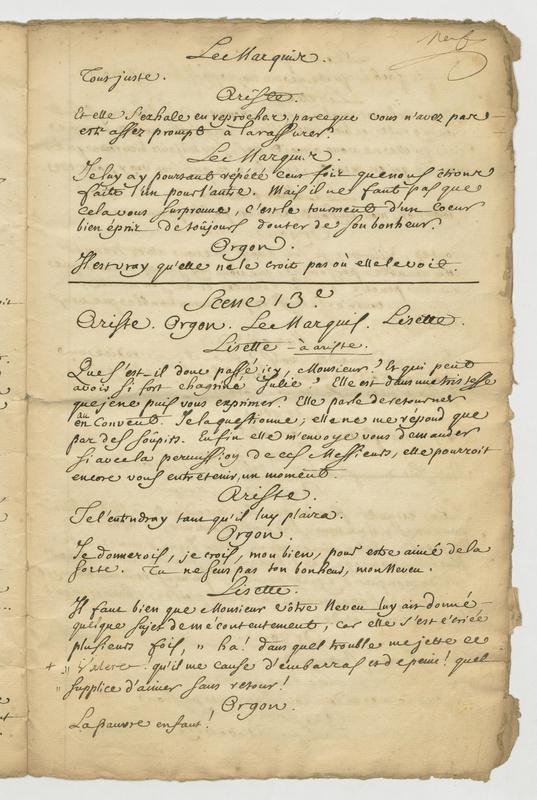 neuf
Le Marquis.
Tout juste.
Ariste.
Et elle s'exhale en reproches, parceque vous n'avez pas
esté assez prompt à la rassurer.
Le Marquis.
Je luy ay poursant répété cent fois que nous étions
faits l'un pour l'autre. Mais il ne faut pas que
cela vous surprenne, c'est le tourment d'un coeur
bien épris de toûjours douter de son bonheur.
Orgon.
Il est vray qu'elle ne le croit pas où elle le voit.
Scene 13.e
Ariste. Orgon. Le Marquis. Lisette.
Lisette - à ariste.
Que s'est-il donc passé icy, Monsieur? Et qui peut
avoir si fort chagriné Julie? Elle est dans une tristesse
que je ne puis vous exprimer. Elle parle de retourner
au Convent. Je la questionne; elle ne me répond que
par des soupirs. Enfin elle m'envoye vous demander
si avec la permission de ces Messieurs, elle pourroit
encore vous entretenir, un moment.
Ariste.
Je l'entendray tant qu'il luy plaira.
Orgon.
Je donnerois, je crois, mon bien, pour estre aimé de la
sorte. Tu ne sens pas ton bonheur, mon Neveu.
Lisette.
Il faut bien que Monsieur vôtre Neveu luy ait donné
quelque sujet de mécontentement, car elle s'est écriée
plusieurs fois, " ha! dans quel trouble me jette ce
+ " Valere! qu'il me cause d'embarras et de peine! quel
" supplice d'aimer sans retour!
Orgon.
La pauvre enfant!